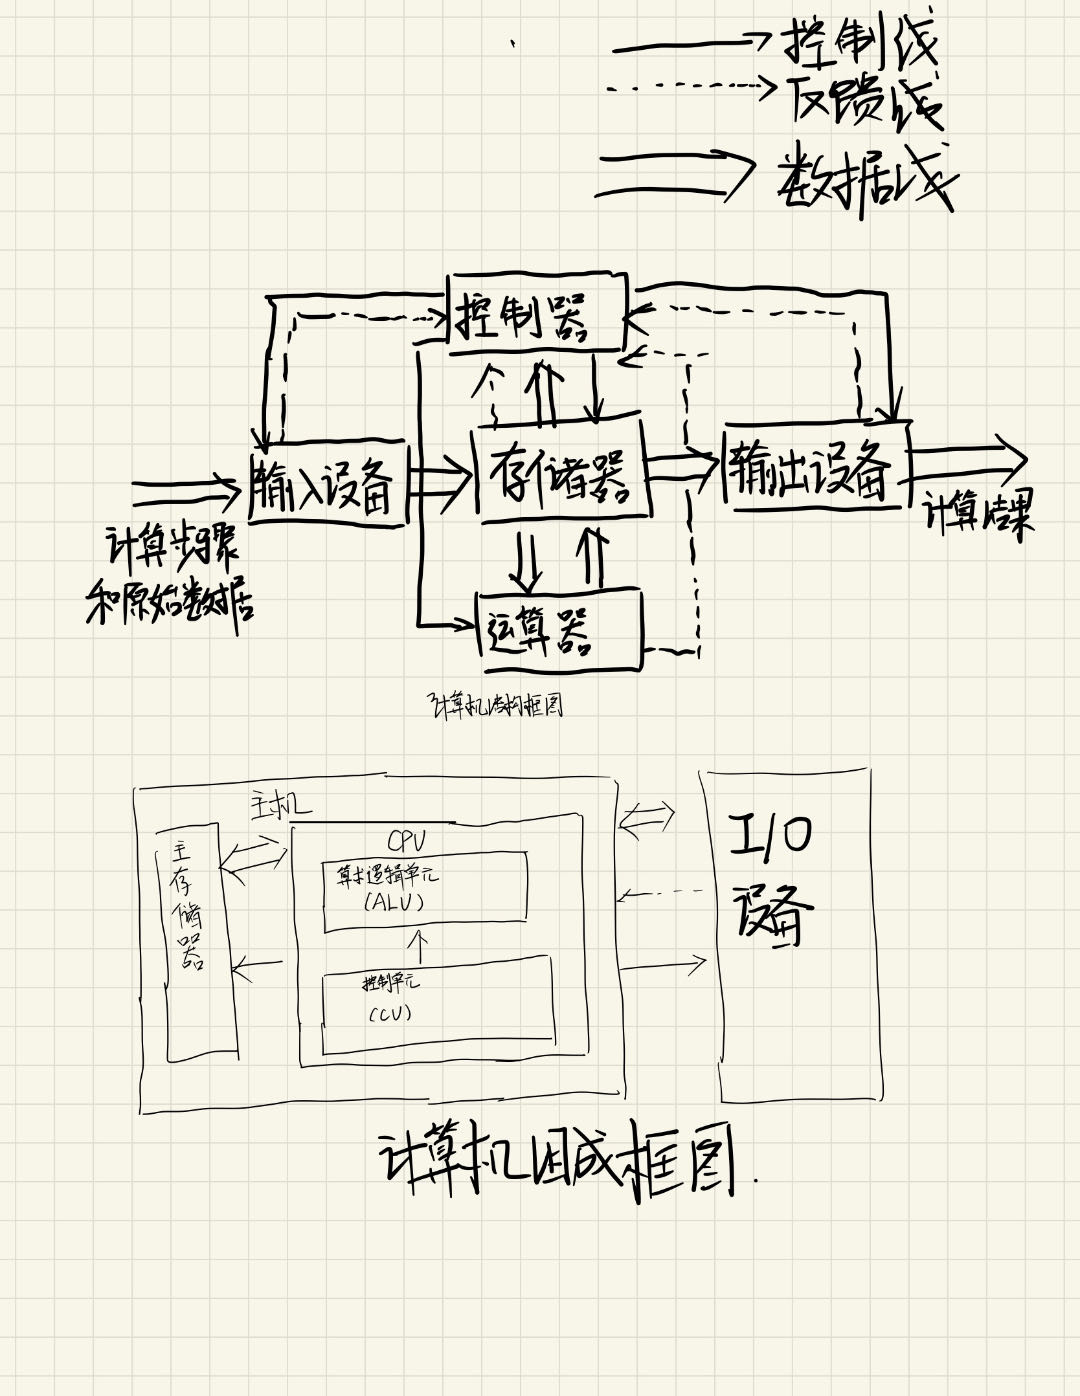 控制线
反馈线
数据线
控制器
输入设备
存储器
输出设备
计算步骤
和原始数据
计算结果
运算器
计算机结构框图
主机
主存储器
CPU
算术逻辑单元
(ALU)
控制单元
(CU)
I/O
设备
计算机组成框图.